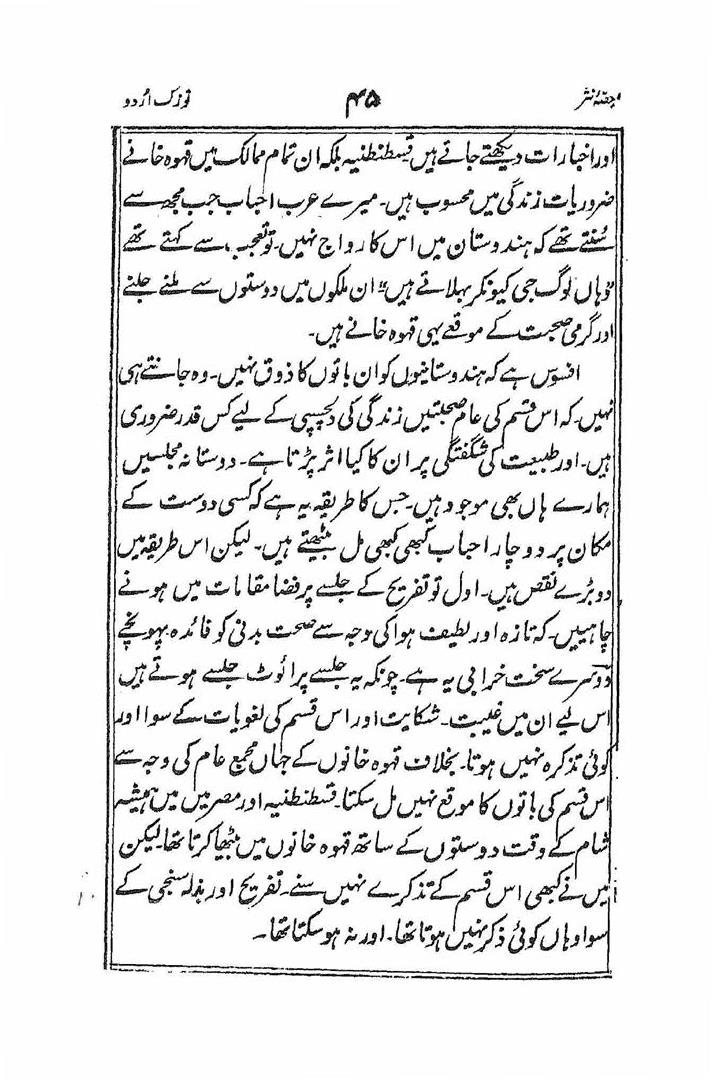 حصۂ نثر ۴۵ توزک اُردو
اور اخبارات دیکھتے جاتے ہیں قسطنطنیہ بلکہ ان تمام ممالک میں قہوہ خانے
ضروریات زندگی میں محسوب ہیں۔ میرے عرب احباب جب مجھ سے
سُنتے تھے کہ ہندوستان میں اس کا رواج نہیں۔ تو تعجب سے کہتے تھے
"وہاں لوگ جی کیونکر بہلاتے ہیں" ان ملکوں میں دوستوں سے ملنے جلنے
اور گرمی صحبت کے موقعے یہی قہوہ خانے ہیں۔
افسوس ہے کہ ہندوستانیوں کو ان باتوں کا ذوق نہیں۔ وہ جانتے ہی
نہیں۔ کہ اس قسم کی عام صحبتیں زندگی کی دلچسپی کے لیے کس قدر ضروری
ہیں۔ اور طبیعت کی شگفتگی پر ان کا کیا اثر پڑتا ہے۔ دوستانہ مجلسیں
ہمارے ہاں بھی موجود ہیں۔ جس کا طریقہ یہ ہے کہ کسی دوست کے
مکان پر دو چار احباب کبھی کبھی مل بیٹھتے ہیں۔ لیکن اس طریقہ میں
دو بڑے نقص ہیں۔ اول تو تفریح کے جلسے پر فضا مقامات میں ہونے
چاہییں۔ کہ تازہ اور لطیف ہوا کی وجہ سے صحت بدنی کو فائدہ پہونچے
دوسرے سخت خرابی یہ ہے۔ چونکہ یہ جلسے پرائوٹ جلسے ہوتے ہیں
اس لیے ان میں غیبت۔ شکایت اور اس قسم کی لغویات کے سوا اور
کوئی تذکرہ نہیں ہوتا۔ بخلاف قہوہ خانوں کے جہاں مجمع عام کی وجہ سے
اس قسم کی باتوں کا موقع نہیں مل سکتا۔ قسطنطنیہ اور مصر میں میں ہمیشہ
شام کے وقت دوستوں کے ساتھ قہوہ خانوں میں بیٹھا کرتا تھا۔ لیکن
میں نے کبھی اس قسم کے تذکرے نہیں سنے۔ تفریح اور بذلہ سنجی کے
سوا وہاں کوئی ذکر نہیں ہوتا تھا۔ اور نہ ہو سکتا تھا۔